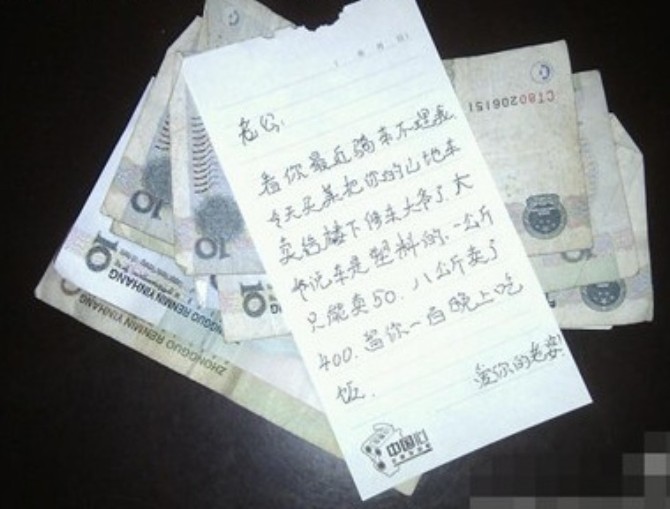 老公:
看你最近骑车不理我
今天买菜把你的山地车
卖给楼下修车大爷了.大
爷说车是塑料的.一公斤
只能卖50.八公斤卖了
400.留你一百晚上吃
饭.
爱你的老婆!
中国
CT80206151
10
10
10
10
ZHONGGUO RENMIN YINHANG
ZHONGGUO RENMIN YINHANG